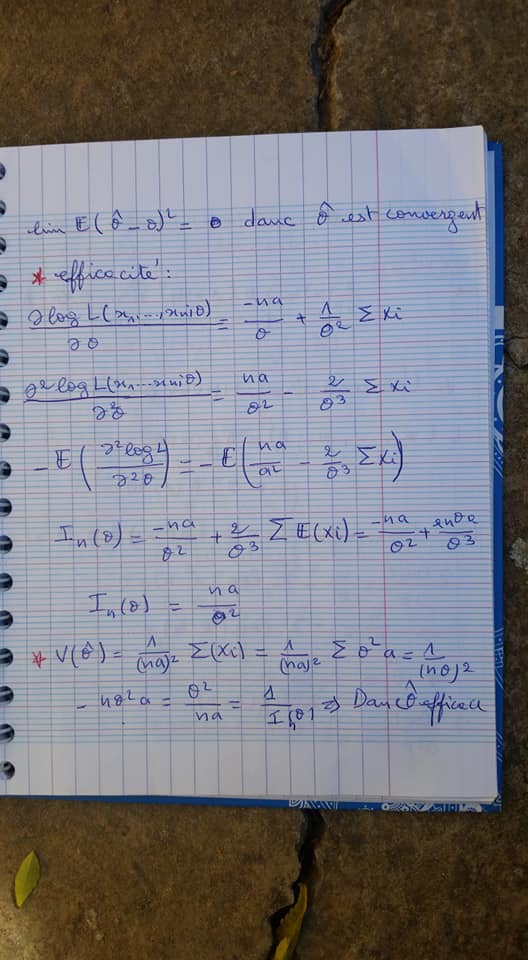 lim E(θ̂ - θ)² = 0 danc θ̂ est convergent
* efficacité :
∂ log L(x₁,...,xn;θ) / ∂θ = -na/θ + 1/θ² Σ Xi
∂² log L(x₁...xn;θ) / ∂²θ = na/θ² - 2/θ³ Σ Xi
- E(∂² log L / ∂²θ) = - E(na/θ² - 2/θ³ Σ Xi)
In(θ) = -na/θ² + 2/θ³ Σ E(Xi) = -na/θ² + 2nθa/θ³
In(θ) = na/θ²
* V(θ̂) = 1/(na)² Σ(Xi) = 1/(na)² Σ θ²a = 1/(nθ)²
- nθ²a = θ²/na = 1/In(θ) ⇒ Danc θ̂ efficace